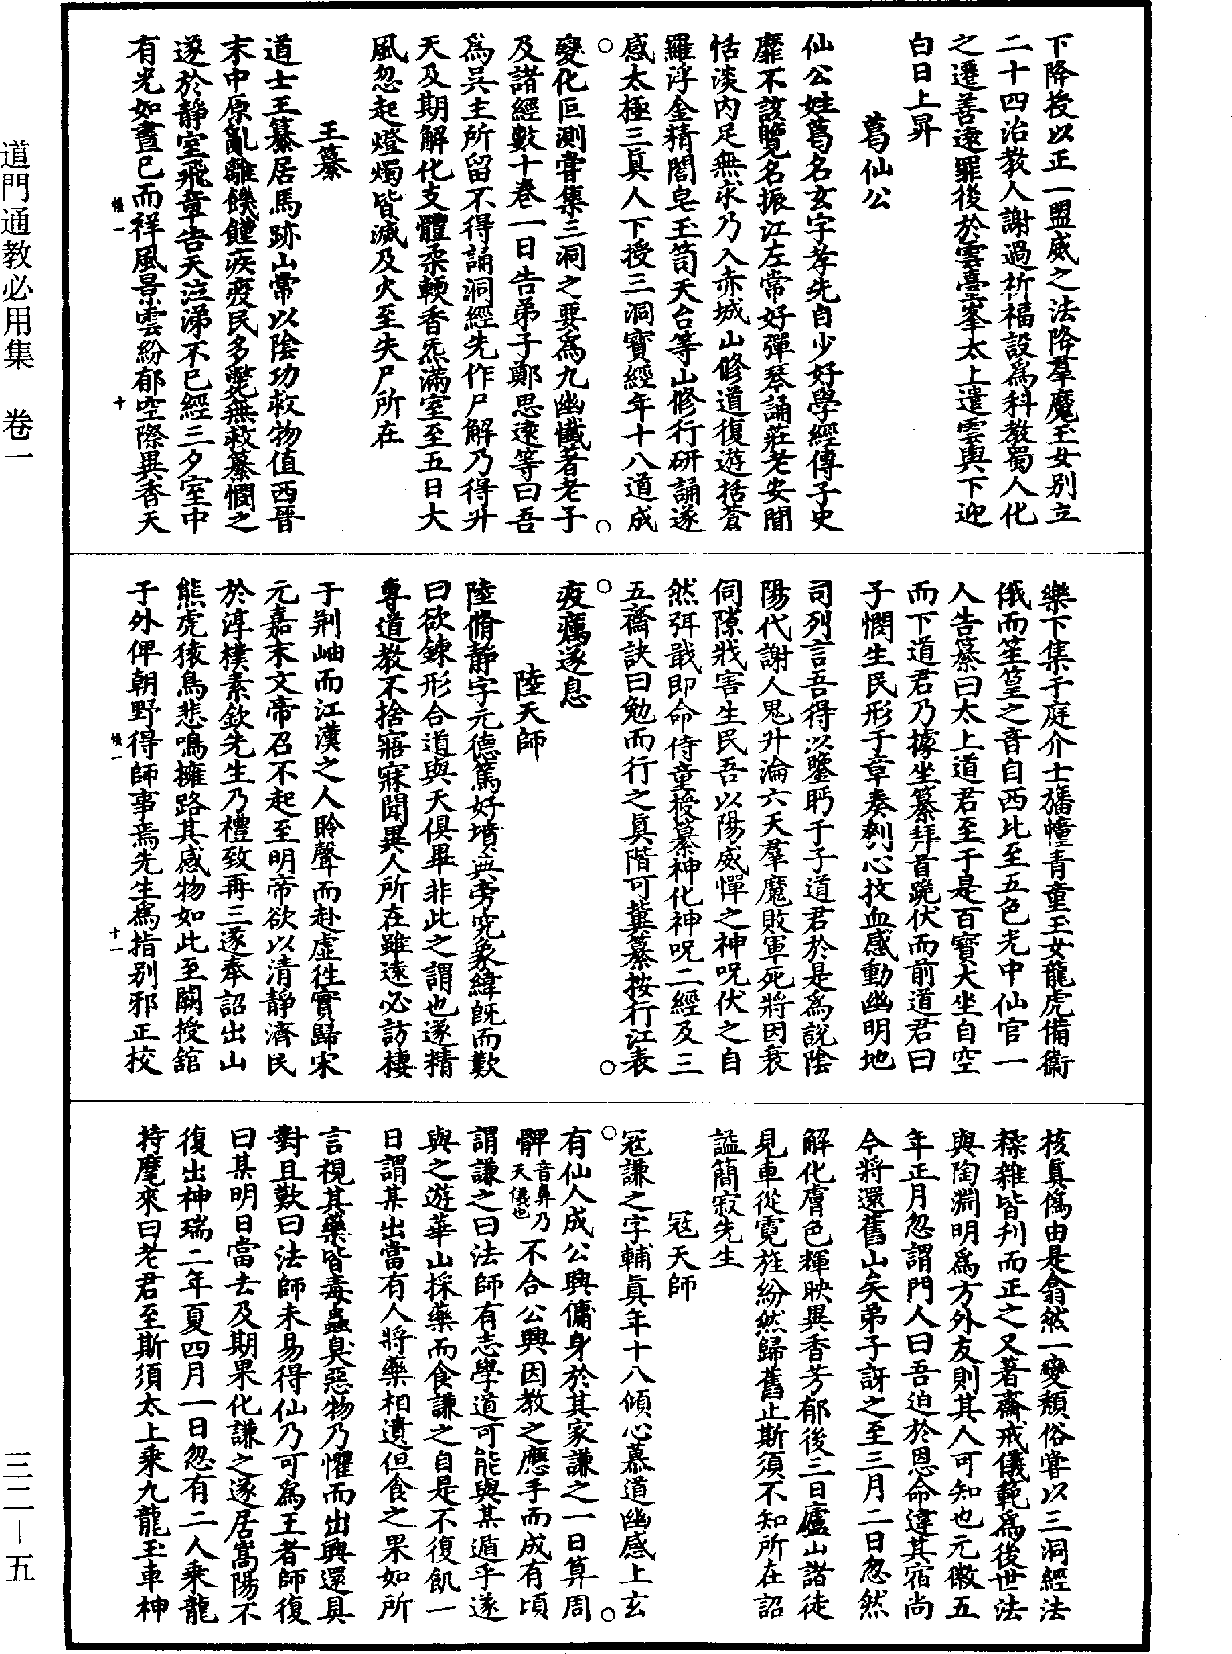 下降授以正一盟威之法降羣魔玉女別立
二十四治教人謝過祈福設爲科教蜀人化
之遷善遠罪後於雲臺峯太上遣雲輿下迎
白日上昇
葛仙公
仙公姓葛名玄字孝先自少好學經傳子史
靡不該覽名振江左常好彈琴誦莊老安閒
恬淡內足無求乃入赤城山修道復遊括蒼
羅浮金精閤皂玉笥天台等山修行研誦遂
感太極三眞人下授三洞寶經年十八道成
變化叵測嘗集三洞之要爲九幽懺著老子
及諸經數十卷一日告弟子鄭思遠等曰吾
爲吳主所留不得誦洞經先作尸解乃得升
天及期解化支體柔輭香炁滿室至五日大
風忽起燈燭皆滅及火至失尸所在
王纂
道士王纂居馬跡山常以陰功救物值西晉
末中原亂離饑饉疾疫民多斃無救纂憫之
遂於靜室飛章告天泣涕不已經三夕室中
有光如晝已而祥風景雲紛郁空際異香天
樂下集于庭介士旛幢青童玉女龍虎備衞
俄而笙篁之音自西北至五色光中仙官一
人告纂曰太上道君至于是百寶大坐自空
而下道君乃據坐纂拜首跪伏而前道君曰
子憫生民形于章奏刳心抆血感動幽明地
司列言吾得以鑒眄于子道君於是爲說陰
陽代謝人鬼升淪六天羣魔敗軍死將因衰
伺隙戕害生民吾以陽威憚之神呪伏之自
然弭戢即命侍童授纂神化神呪二經及三
五齋訣曰勉而行之眞階可冀纂按行江表
疫癘遂息
陸天師
陸脩靜字元德篤好墳典旁究象緯旣而歎
曰欲鍊形合道與天俱畢非此之謂也遂精
專道教不捨寤寐聞異人所在雖遠必訪棲
于荆岫而江漢之人聆聲而赴虛徃實歸宋
元嘉末文帝召不起至明帝欲以清靜濟民
於淳樸素欽先生乃禮致再三遂奉詔出山
熊虎猿鳥悲鳴擁路其感物如此至闕授舘
于外俾朝野得師事焉先生爲指別邪正校
核眞僞由是翕然一變頹俗嘗以三洞經法
糅雜皆刋而正之又著齋戒儀範爲後世法
與陶淵明爲方外友則其人可知也元徽五
年正月忽謂門人曰吾迫於恩命違其宿尚
今將還舊山矣弟子訝之至三月二日忽然
解化膚色輝映異香芳郁後三日廬山諸徒
見車從霓旌紛然歸舊止斯須不知所在詔
諡簡寂先生
冦天師
冦謙之字輔眞年十八傾心慕道幽感上玄
有仙人成公興傭身於其家謙之一日算周
髀音鼻乃天儀也不合公興因教之應手而成有頃
謂謙之曰法師有志學道可能與某遁乎遂
與之遊華山採藥而食謙之自是不復飢一
日謂某出當有人將藥相遺但食之果如所
言視其藥皆毒蟲臭惡物乃懼而出興還具
對且歎曰法師未易得仙乃可爲王者師復
曰某明日當去及期果化謙之遂居嵩陽不
復出神瑞二年夏四月一日忽有二人乘龍
持麾來曰老君至斯須太上乘九龍玉車神
道門通教必用集 卷一
三二－五